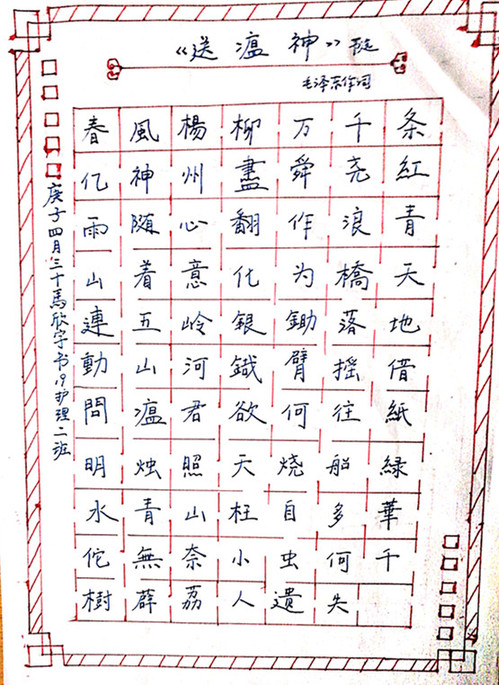 《送瘟神》
毛泽东作词
春風楊柳万千条
亿神州盡舜尧紅
雨随心翻作浪青
山着意化为橋天
連五岭銀鋤落地
動山河鐵臂摇借
問瘟君欲何往紙
明烛照天烧船緑
水青山枉自多華
佗無奈小虫何千
樹薜荔人遺失
庚子四月三十馬欣宇书19护理二班